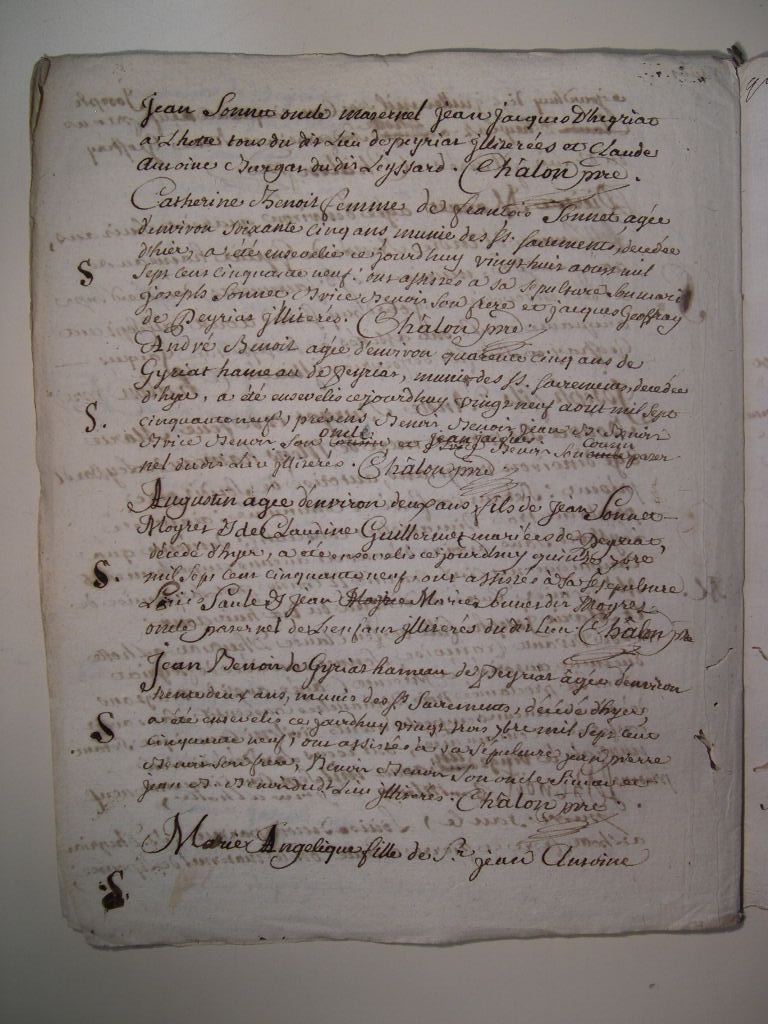 Jean Sonnet oncle maternel jean jacques D'heyriat
a L'hote tous du dit Lieu de peyriat jlliterées et Claude
Antoine Burgat du dit Leyssard. Châlon pre.
Catherine Benoit femme de francois Sonnet agée
d'environ soixante cinq ans munie des SS. sacrements, decedée
d'hier, a été ensevelie ce jourdhuy vingt huit aoust mil
S
sept cent cinquante neuf. ont assistés a sa sepulture son mari
joseph Sonnet Brice Benoit son frere et jacques Geoffray
de Peyriat jlliterés. Châlon pre.
André Benoit agée d'environ quarente cinq ans de
Gyriat hameau de Peyriat, munie des SS. sacrements, decedée
d'hyer, a été ensevelie ce jourdhuy vingt neuf aout mil sept
S.
cinquante neuf, présens Benoit Benoit jean Bt. Benoit
Brice Benoit son oncle et jean jacques Benoit son Cousin pater
nel du dit Lieu jlliterés. Châlon pre
Augustin agée d'environ deux ans, fils de jean Sonnet
Moyret & de Claudine Guillermet mariées de Peyriat,
décédé d'hyer, a été ensevelie ce jourdhuy quinze 7bre
S.
mil sept cent cinquante neuf, ont assistés à sa sepulture
Loüis Saule & jean Morice dit Moyret
oncle paternel de L'enfant jlliterés du dit Lieu Châlon pre
Jean Benoit de Gyriat hameau de Peyriat âgée d'environ
trente deux ans, munis des SS. Sacrements, décédé d'hyer,
a été ensevelie ce jourdhuy vingt trois 7bre mil sept cent
S
cinquante neuf, ont assistés à sa sépulture jean pierre
Benoit son frere, Benoit Benoit son oncle et
jean Bt. Benoit du dit Lieu jlliterés. Châlon pre.
Marie Angelique fille de Sr. jean Antoine
S.